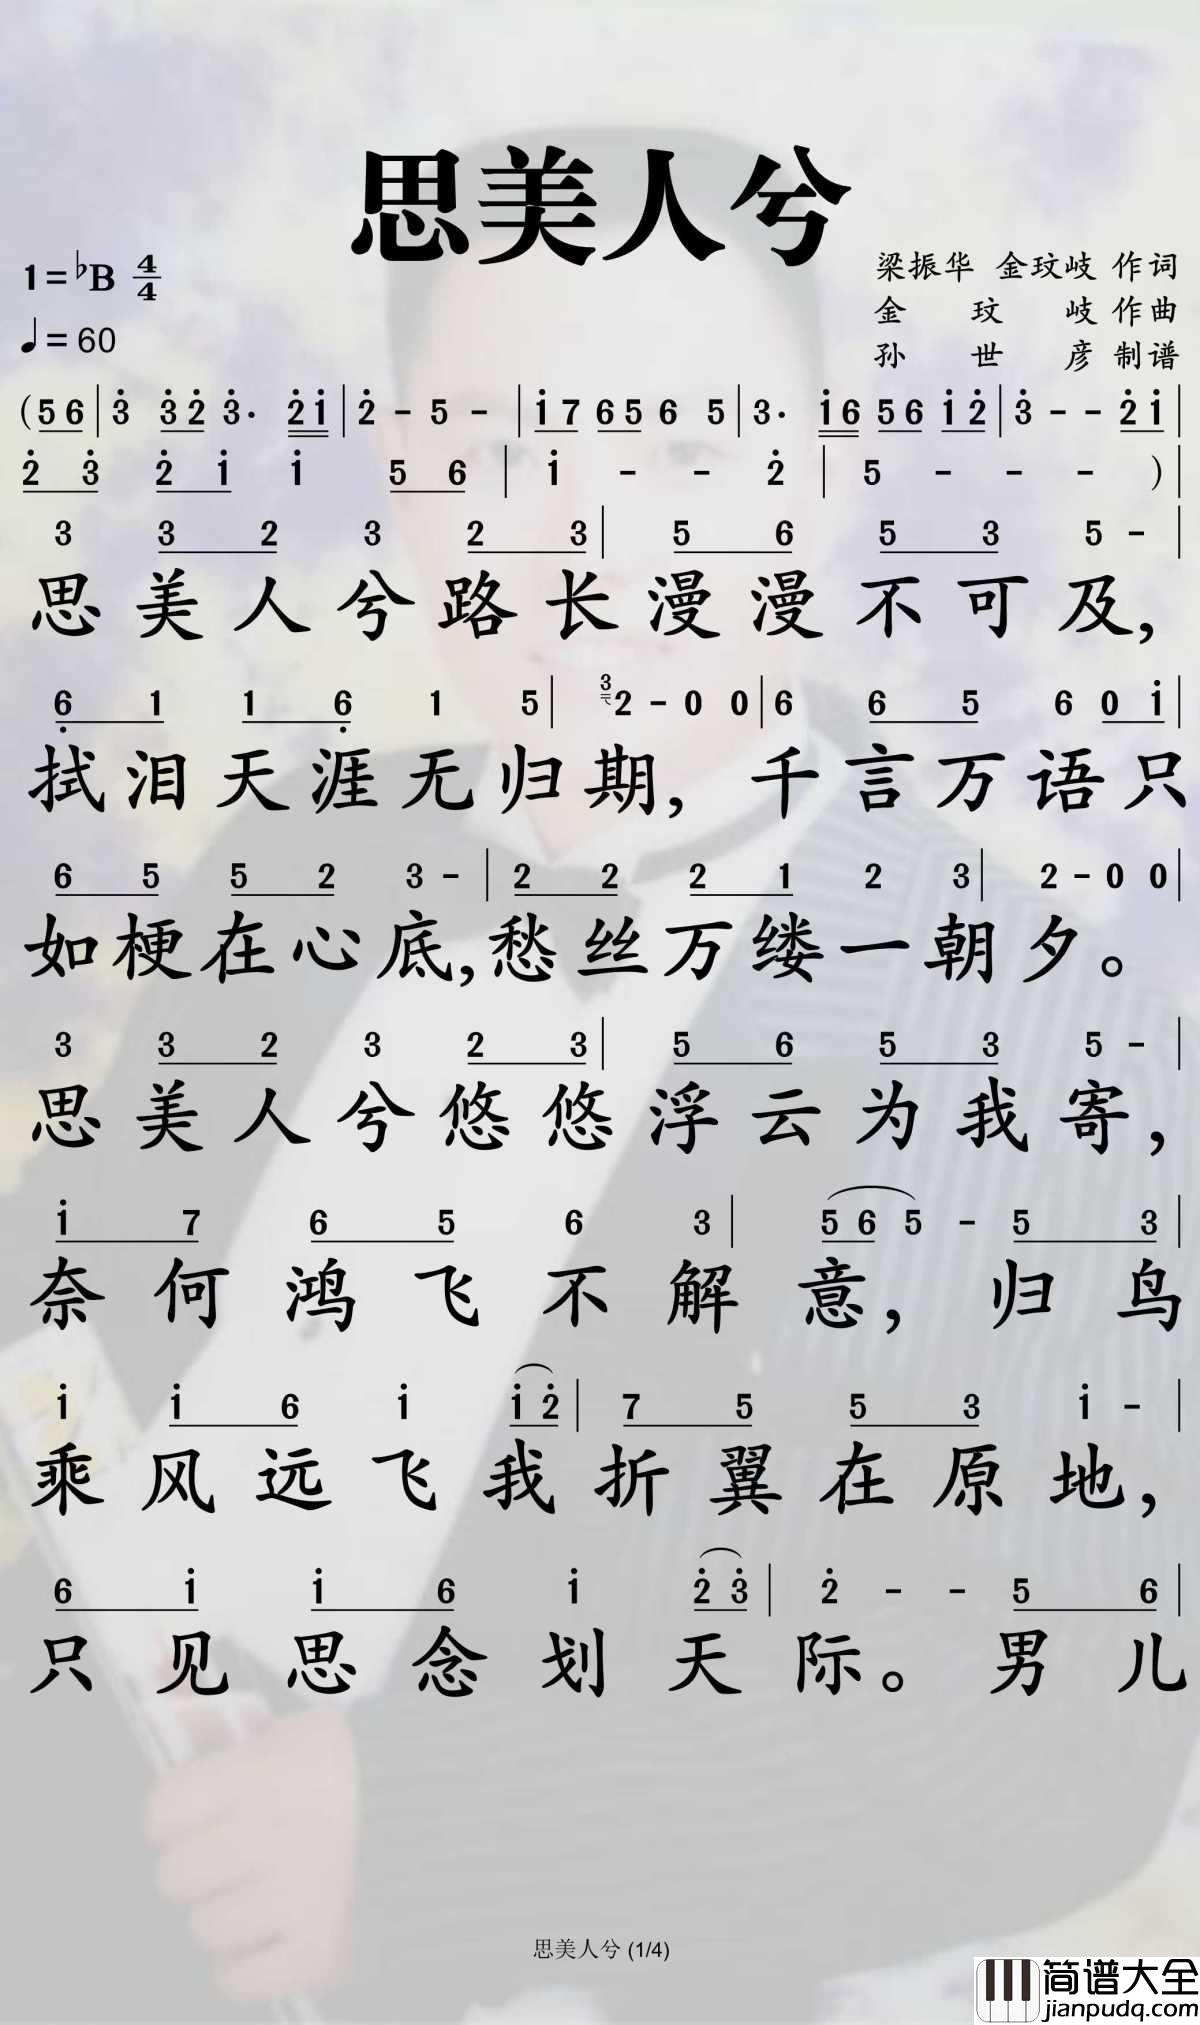 思美人兮
1=♭B 4/4
梁振华 金玟岐 作词
金玟岐 作曲
♩=60
孙世彦 制谱
(5 6 | 3̇ 3̇ 2̇ 3̇· 2̇ 1̇ | 2̇ - 5 - | 1̇ 7 6 5 6 5 | 3· 1̇ 6 5 6 1̇ 2̇ | 3̇ - - 2̇ 1̇ |
2̇ 3̇ 2̇ 1̇ 1̇ 5 6 | 1̇ - - 2̇ | 5 - - - ) |
3 3 2 3 2 3 | 5 6 5 3 5 - |
思美人兮路长漫漫不可及,
6̣ 1 1 6̣ 1 5 | 3 2 - 0 0 | 6 6 5 6 0 1̇ |
拭泪天涯无归期,千言万语只
6 5 5 2 3 - | 2 2 2 1 2 3 | 2 - 0 0 |
如梗在心底,愁丝万缕一朝夕。
3 3 2 3 2 3 | 5 6 5 3 5 - |
思美人兮悠悠浮云为我寄,
1̇ 7 6 5 6 3 | 5 6 5 - 5 3 |
奈何鸿飞不解意,归鸟
1̇ 1̇ 6 1̇ 1̇ 2̇ | 7 5 5 3 1̇ - |
乘风远飞我折翼在原地,
6 1̇ 1̇ 6 1̇ 2̇ 3̇ | 2̇ - - 5 6 |
只见思念划天际。男儿
思美人兮 (1/4)
简谱大全
jianpudq.com